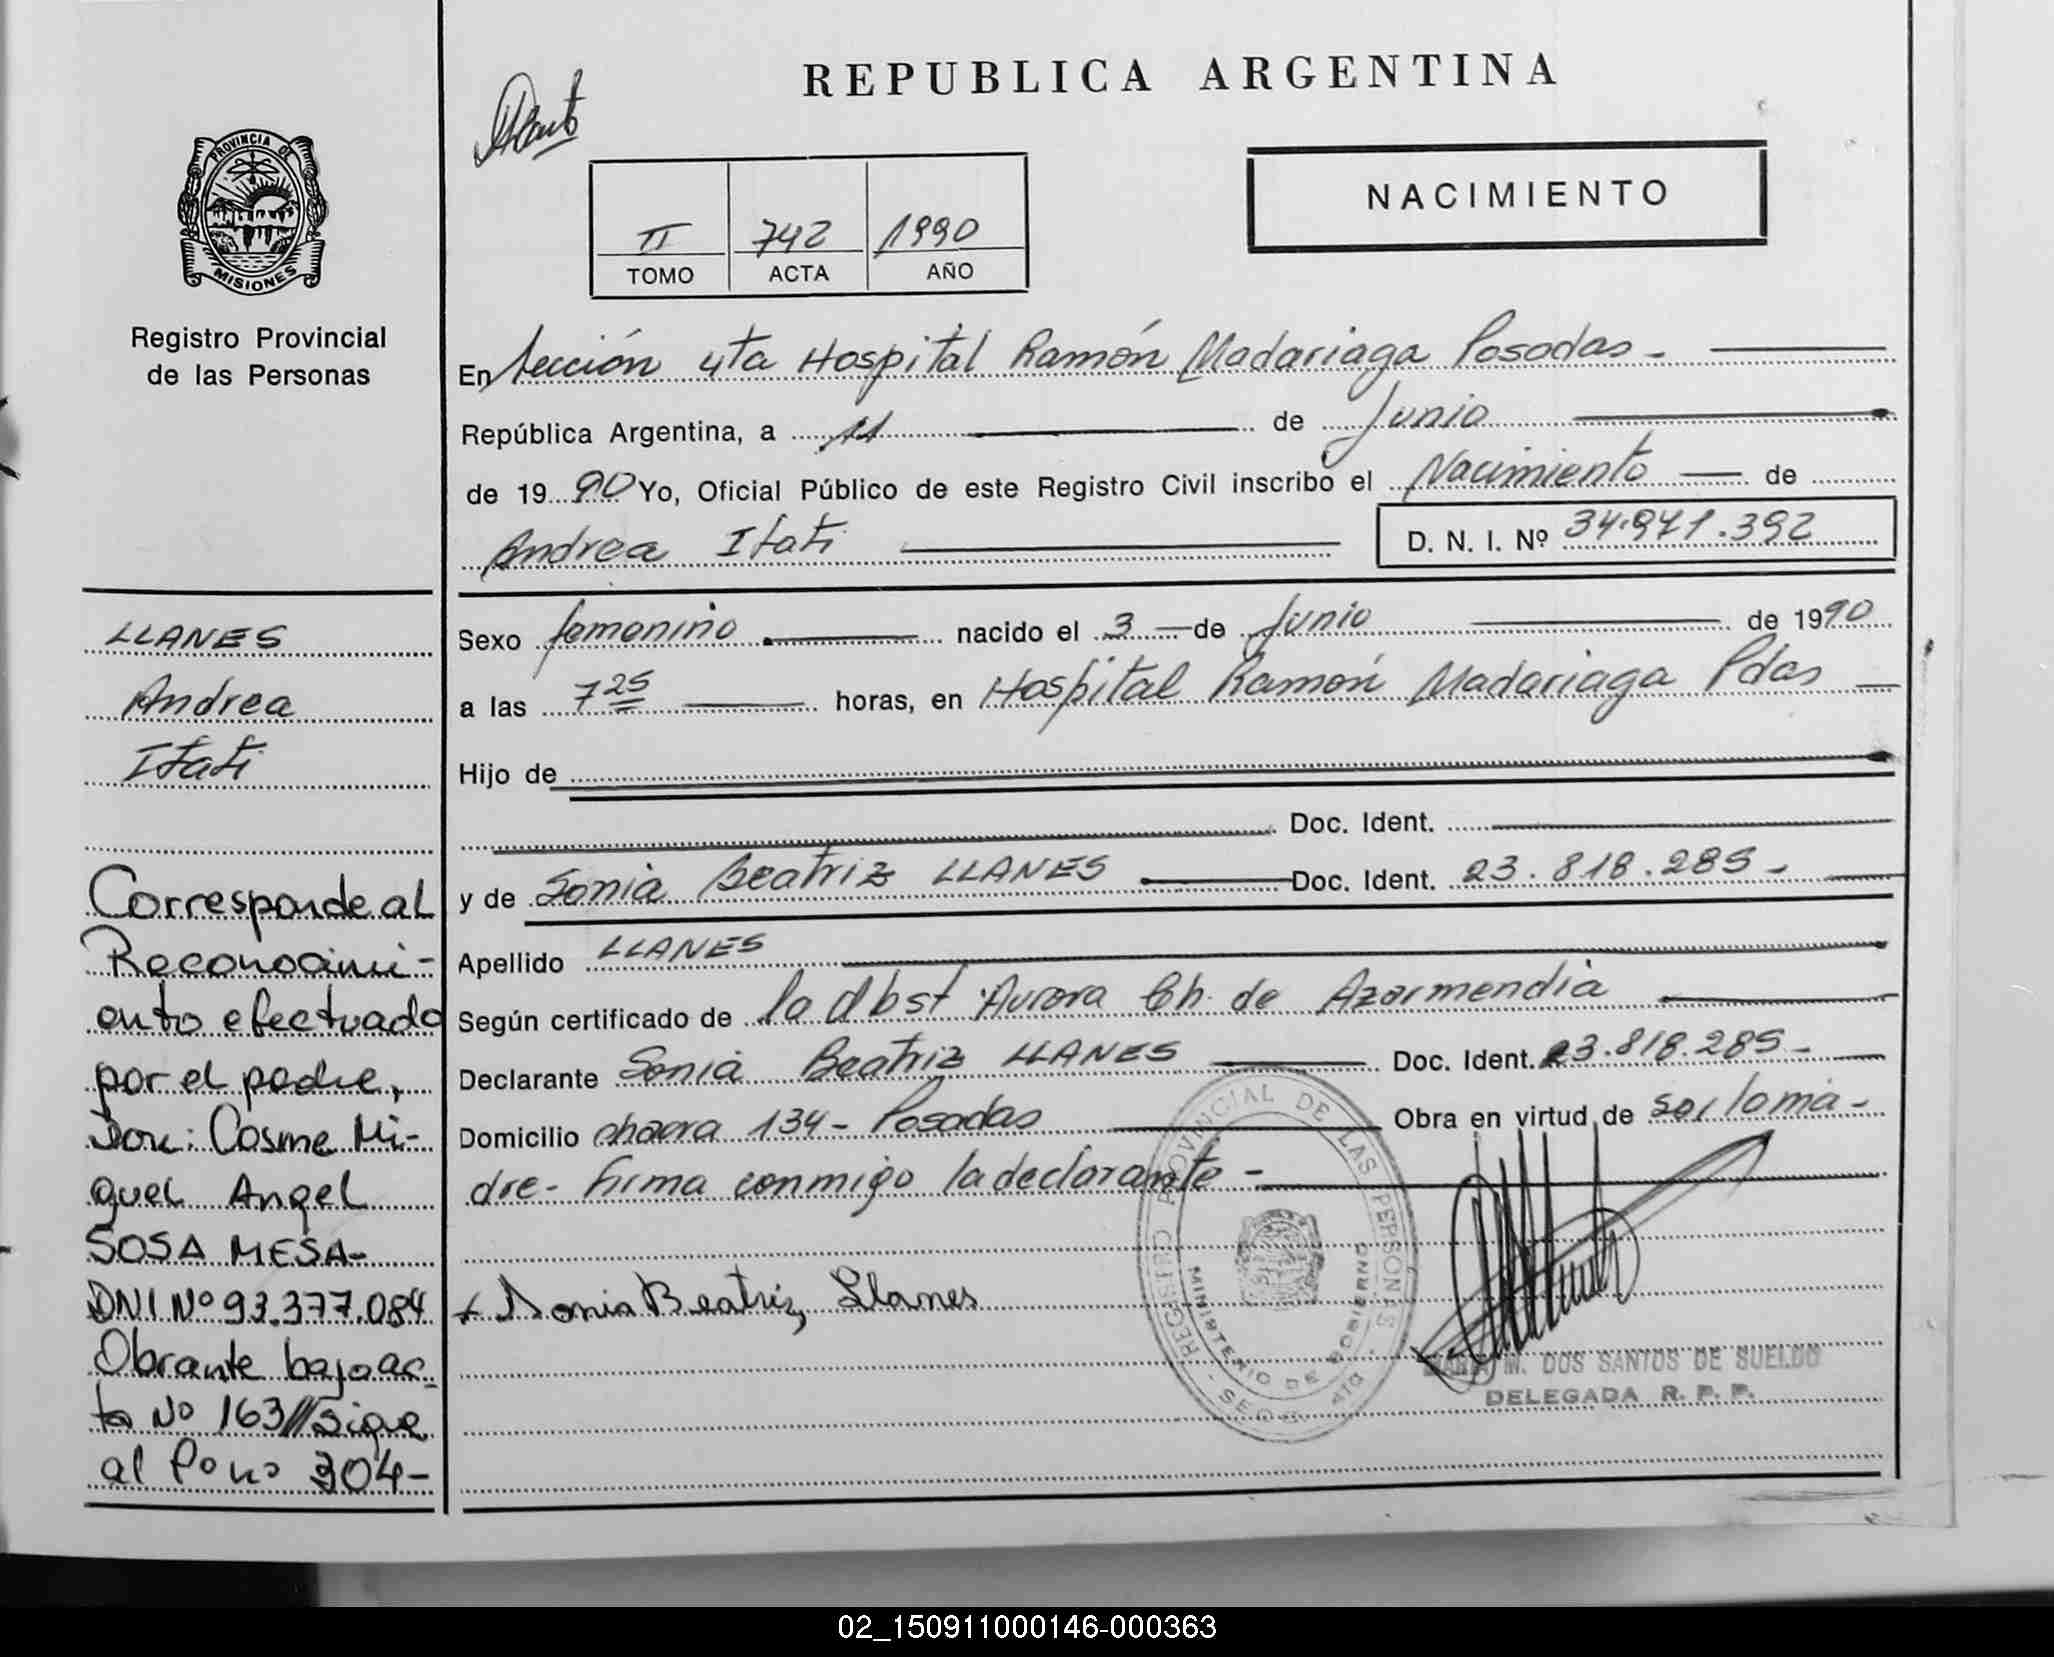 REPUBLICA ARGENTINA
PROVINCIA DE
MISIONES
Registro Provincial
de las Personas
NACIMIENTO
II 742 1990
TOMO ACTA AÑO
En Sección 4ta Hospital Ramón Madariaga Posadas -
República Argentina, a 11 de Junio
de 1990 Yo, Oficial Público de este Registro Civil inscribo el Nacimiento de
Andrea Itati D. N. I. Nº 34.971.392
Sexo femenino nacido el 3 de Junio de 1990
a las 7 25 horas, en Hospital Ramón Madariaga Pdas
Hijo de
Doc. Ident.
y de Sonia Beatriz LLANES Doc. Ident. 23.818.285-
Apellido LLANES
Según certificado de la Obst Aurora Ch. de Azarmendia
Declarante Sonia Beatriz LLANES Doc. Ident. 23.818.285-
Domicilio chacra 134- Posadas Obra en virtud de ser la ma-
dre- firma conmigo la declarante -
Sonia Beatriz Llanes
REGISTRO PROVINCIAL DE LAS PERSONAS
MINISTERIO DE GOBIERNO
MARIA M. DOS SANTOS DE SUELDO
DELEGADA R. P. P.
LLANES
Andrea
Itati
Corresponde al
Reconocimi-
ento efectuado
por el padre,
Don: Cosme Mi-
guel Angel
SOSA MESA-
DNI Nº 93.377.084
Obrante bajo ac-
ta Nº 163// sigue
al Folio 304-
02_150911000146-000363